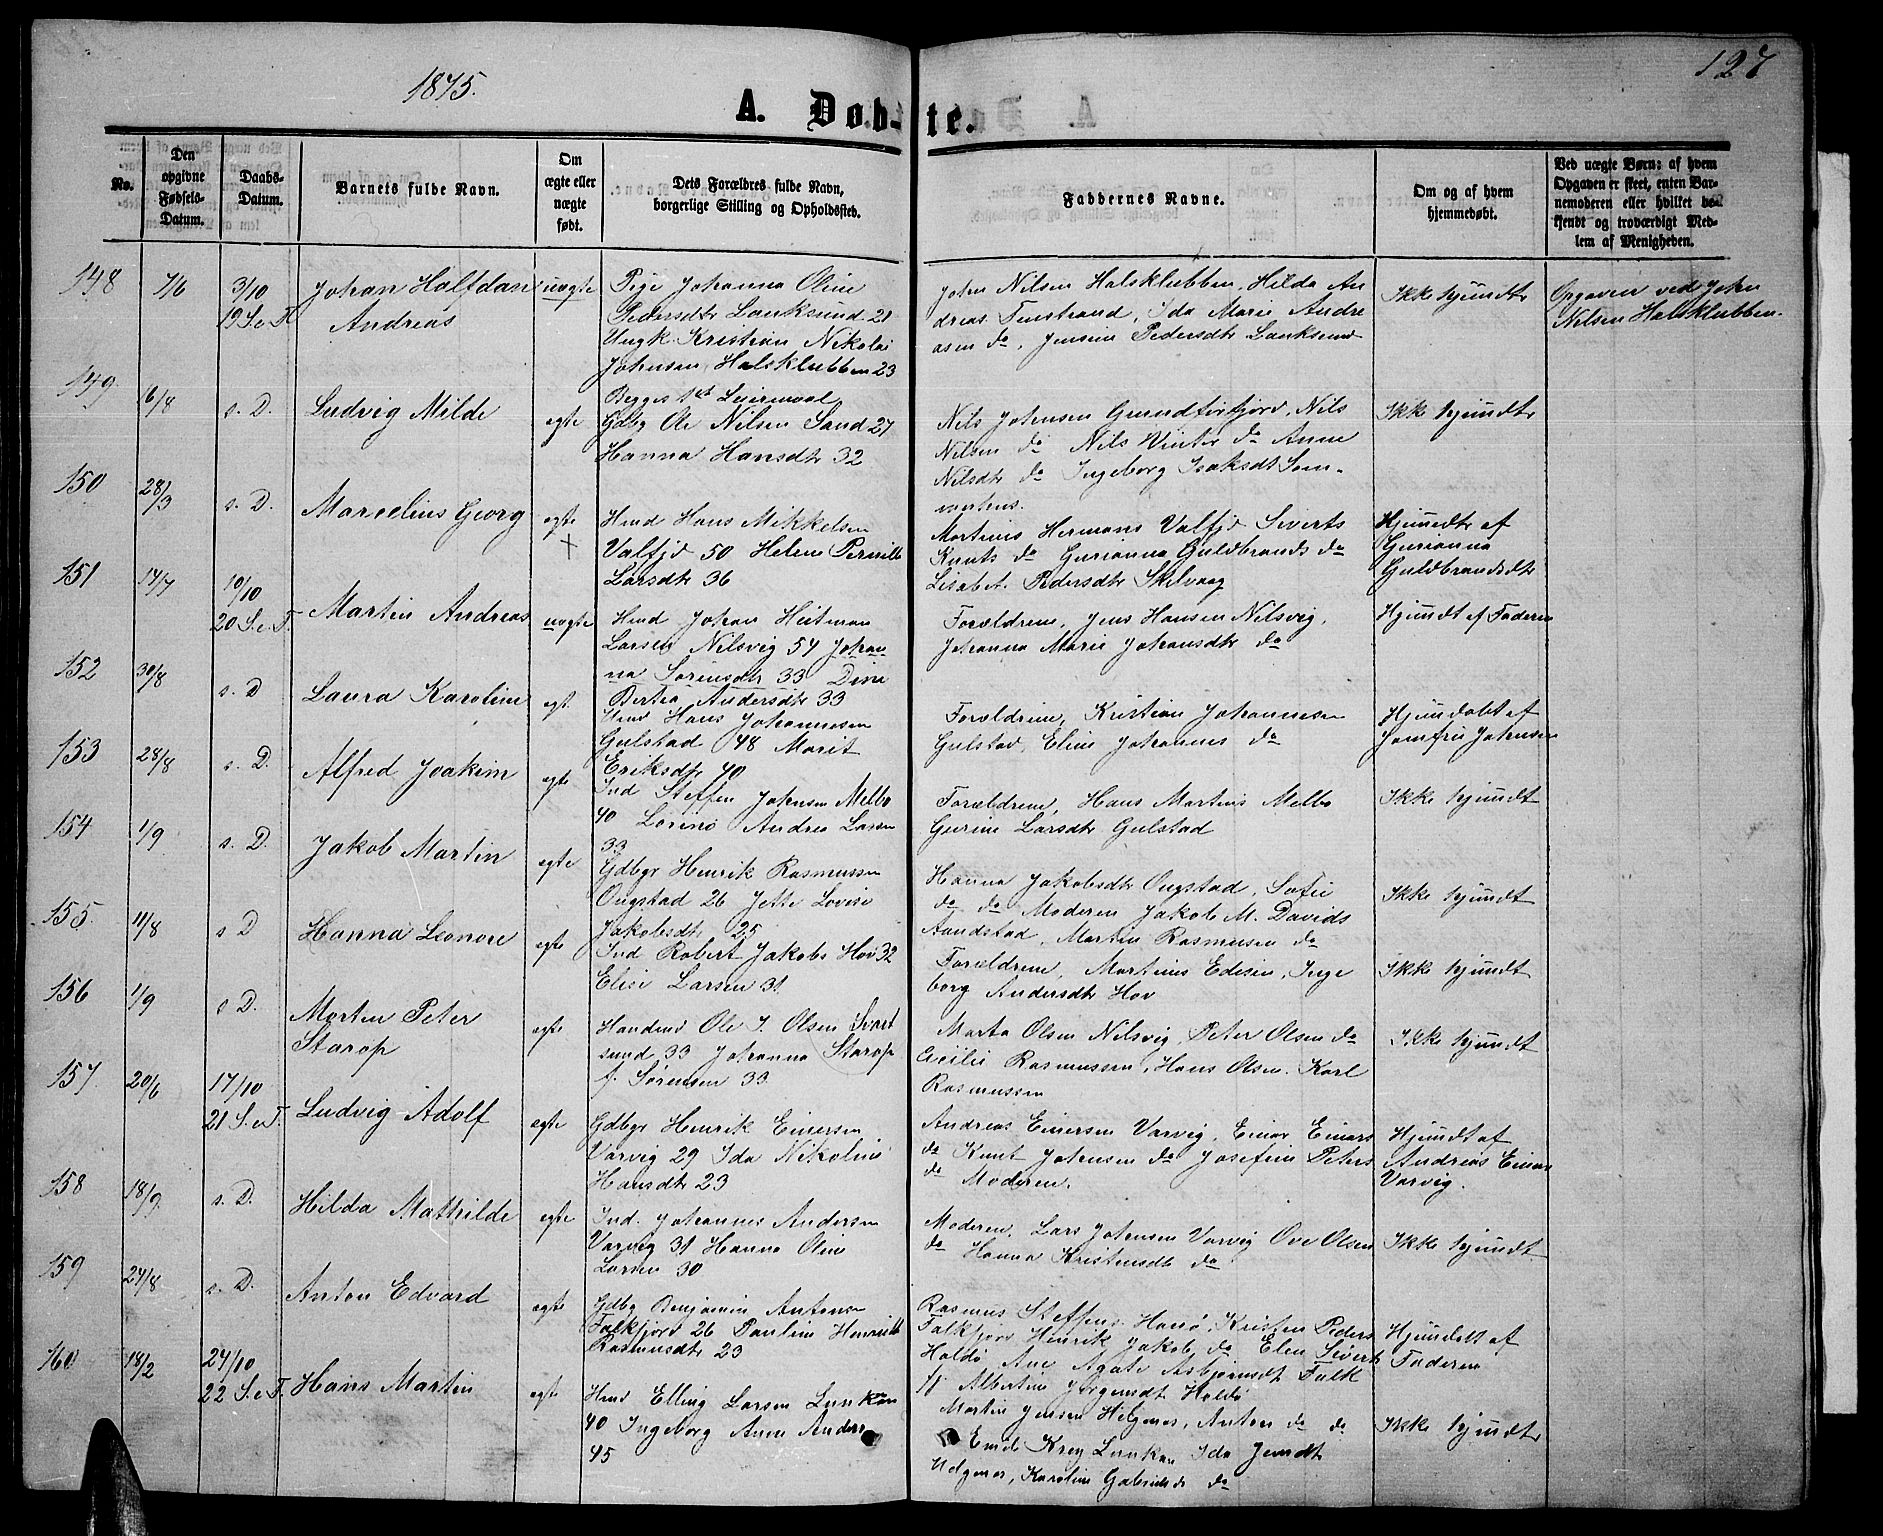 1875.
127
A. Døb-
te.
No.
Den opgivne Fødsels-Datum.
Daabs-Datum.
Barnets fulde Navn.
Om ægte eller uægte født.
Dets Forældres fulde Navn, borgerlige Stilling og Opholdssted.
Faddernes Navne.
Om og af hvem hjemmedøbt.
Ved uægte Børn: af hvem Opgaven er skeet, enten Barnemoderen eller hvilket bekjendt og troværdigt Medlem af Menigheden.
148
7/6
3/10
19 S. e. T.
Johan Halfdan
Andreas
uægte
Pige Johanna Oline
Pedersdtr Lonksund 21
Ungk. Kristian Nikolai
Johnsen Halsklubben 23
Begges 1st Leiermaal
John Nilsen Halsklubben, Hilda An
dreas Finstrand, Ida Marie Andre
asen do, Jensine Pedersdtr Lonksund
Ikke hjemdt
Opgaven ved John
Nilsen Halsklubben.
149
6/8
s. D.
Ludvig Milde
egte
Gdbg Ole Nilsen Sand 27
Hanna Hansdtr 32
Nils Johnsen Grundførfjord, Nils
Nilsen do Nils Winter do Anne
Nilsdtr do Ingeborg Isaksdt Som-
Ikke hjemdt
150
28/3
s. D.
Marcelius Georg
egte
+
Hmd Hans Mikkelsen
Valfjd 50 Helene Pernille
Larsdtr 36
Martinus Hermans Valfjd Siverts
Knuts do Gurianna Guldbrands do
Lisabet Pedersdtr Skelvaag
Hjemdt af
Gurianna
Guldbrandsdtr
151
14/7
10/10
20 S. e. T.
Martin Andreas
uægte
Hmd Johan Heitman
Larsen Nilsvig 54 Johan-
na Sørensdtr 33 Dina
Bertea Andersdtr 33
Forældrene, Jens Hansen Nilsvig,
Johanna Marie Johansdtr do
Hjemdt af Faderen
152
30/8
s. D
Laura Karoline
egt.
Hmd Hans Johannesen
Gulstad 48 Marit
Eriksdtr 40
Forældrene, Kristian Johannesen
Gulstad, Eline Johannes do
Hjemdøbt af
Jomfru Johnsen
153
28/8
s. D.
Alfred Joakim
egte
Ind Steffen Johnsen Melbo
40 Lorino Andrea Larsen
33
Forældrene, Hans Martinus Melbo
Gurine Larsdtr Gulstad
Ikke hjemdt
154
1/9
s. D.
Jakob Martin
egte
Gdbgr Henrik Rasmussen
Ongstad 26 Jette Lovise
Jakobsdtr 25
Hanna Jakobsdtr Ongstad, Sofie
do do Moderen Jakob M. Davids
Aandstad, Martin Rasmusen do
Ikke hjemdt
155.
11/8
s D
Hanna Leonore
egte
Ind Robert Jakobs Hov 32
Elise Larsen 31
Forældrene, Martinus Edisen, Inge
borg Andersdtr Hov
Ikke hjemdt
156
1/9
s D.
Morten Peter
Starop
egte
Handmd Ole J. Olsen Svart
sund 33 Johanna Starop
f. Sørensen 33
Marta Olsen Nilsvig, Peter Olsen do
Cecilie Rasmussen, Hans Olsen, Karl
Rasmussen
Ikke hjemdt
157
20/6
17/10
21 S. e. T.
Ludvig Adolf
egte
Gdbgr Henrik Einersen
Varvig 29 Ida Nikoline
Hansdtr 23
Andreas Einersen Varvig, Einar Einars
do Knut Johnsen do Josefine Peters
do Moderen.
Hjemdt af
Andreas Einars
Varvig.
158
18/9
s. D.
Hilda Mathilde
egte
Ind. Johannes Andersen
Varvig 31 Hanna Oline
Larsen 30
Moderen, Lars Johnsen Varvig Ove Olsen
do Hanna Kristensdtr do
Ikke hjemdt
159
24/8
s. D.
Anton Edvard
egte
Gdbg Benjamin Antonsen
Falkfjord 26 Pauline Henriette
Rasmusdtr 23
Rasmus Steffens Hanø, Kristen Peders
Falkfjord Henrik Jakob do Elen Sivert
Holdø Ane Agate Asbjørnsdt Falk
fj Albertine Jørgensdt Holdø
Hjemdøbt af
Faderen
160
18/2
24/10
22 S. e. T.
Hans Martin
egte
Hmd Elling Larsen Lunkan
40 Ingeborg Anne Anders
45
Martin Jensen Helgenes, Anton do do
Emil Krey Lunkan Ida Jensdt
Helgenes, Karoline Gabriels do
Ikke hjemdt